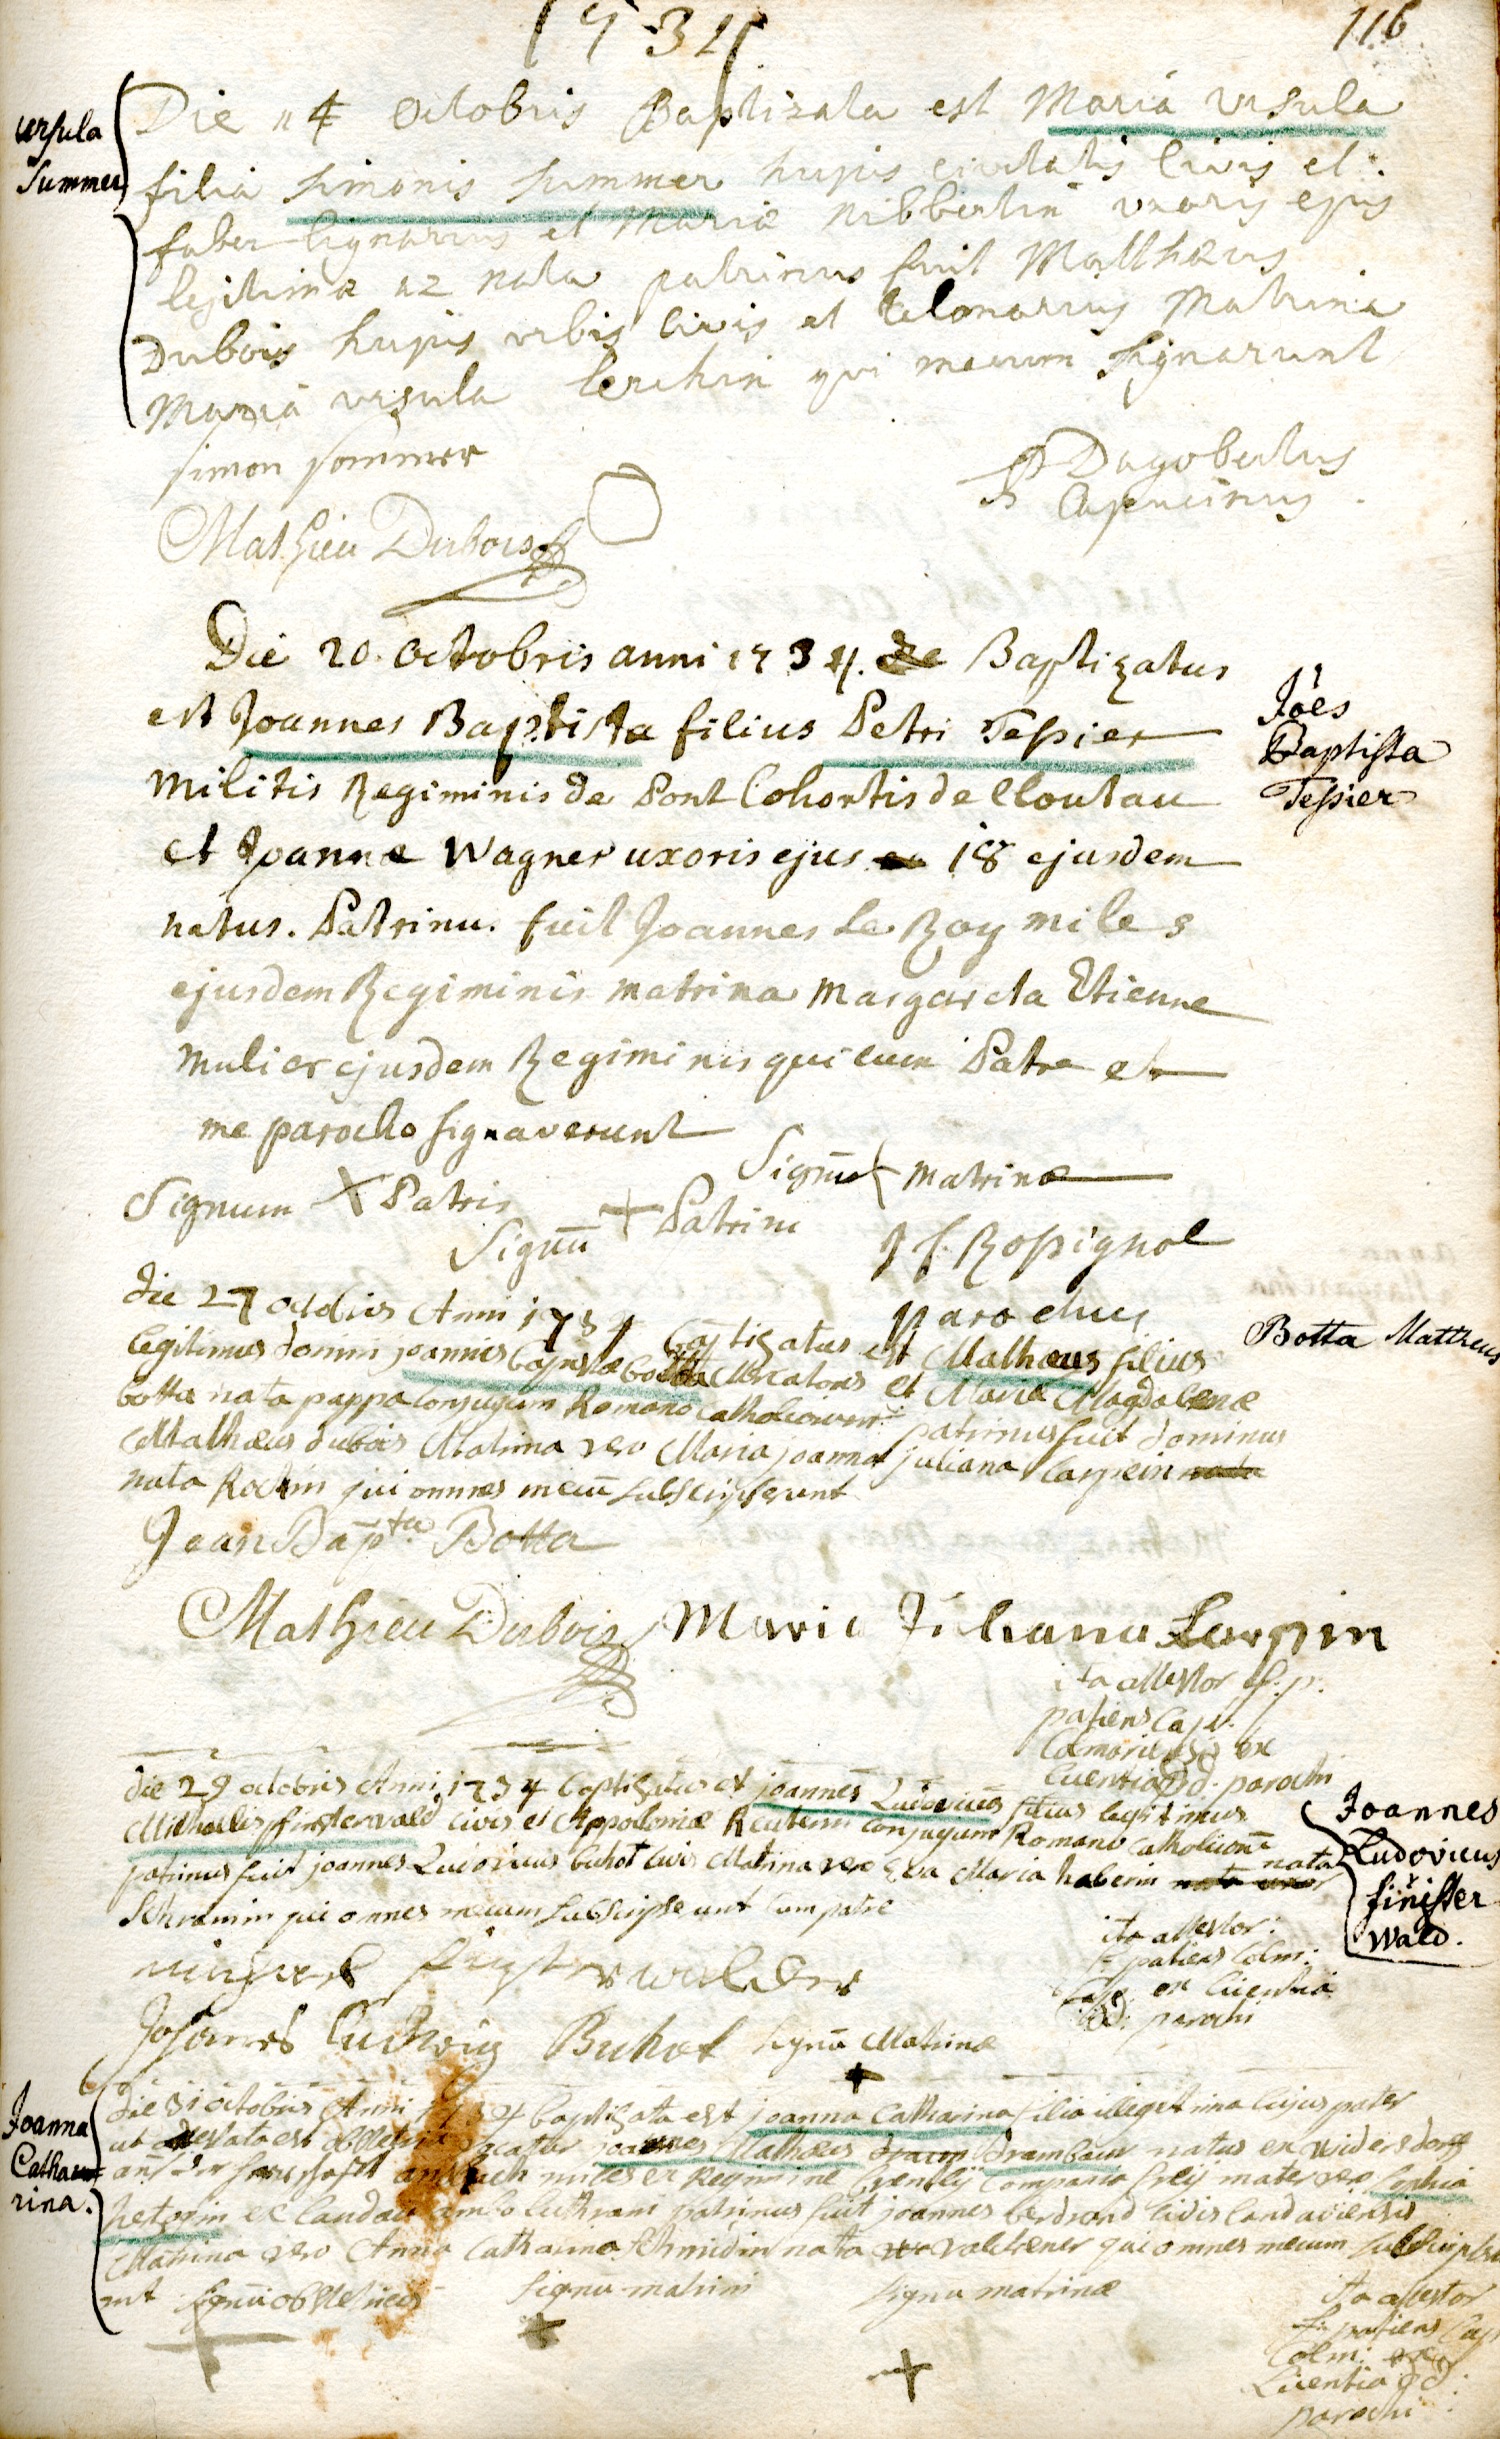 1734
116
Die 14 octobris Baptizata est Maria Ursula
ursula
Summer
filia simonis summer hujus civitatis Civis et
faber lignarius et Mariæ Nibberlin uxoris ejus
legitimæ 12 nata patrinus fuit Matthæus
Dubois hujus urbis Civis et telonarius Matrina
Maria ursula Lerchin qui mecum signarunt
simon sommer
P Dagobertus
Capucinus.
Mathieu Dubois
Die 20. Octobris anni 1734. Baptizatus
est Joannes Baptista filius Petri Tessier
Joes
Baptista
Tessier
Militis Regiminis de Pont Cohortis de
et Joannæ Wagner uxoris ejus 18 ejusdem
natus. Patrinus fuit Joannes Le Roy miles
ejusdem Regiminis matrina Margareta Etienne
Mulier ejusdem Regiminis qui cum Patre et
me parocho signaverunt
Signum X Patris
Signū + Patrini
Signū + matrinæ
J f. Rossignol
parochus
die 27 octobris Anni 1734 baptizatus est Mathæus filius
Botta Mattheus
legitimus domini joannis baptistæ botta Mercatoris et Mariæ Magdalenæ
botta nata pappa conjugum Romano catholicorum patrinus fuit dominus
Mathæus dubois Matrina vero Maria joanna juliana Larpein nata
nata Rochin qui omnes mecū subscripserunt
Jean Bap.ta Botta
Mathieu Dubois Maria Juliana Larpin
ita attestor f. p.
patiens Cap.
Colmariensis ex
licentia d. parochi
die 29 octobris Anni 1734 baptizatus est joannes Ludovicus filius legitimus
Michaelis finsterwald civis et Appoloniæ Reuterin conjugum Romano catholicorū
Joannes
Ludovicus
finister
Wald.
patrinus fuit joannes Ludovicus buhot civis Matrina vero Eva Maria haberin nata
Schramin qui omnes mecum subscripserunt cum patre
ita attestor:
f: patiens Colm:
Cap: ex licentia
d: parochi
finsterwalder
Johannes Ludwig Buhot signū Matrinæ
+
die 31 octobris Anni 1734 baptizata est joanna Catharina filia illegitima cujus pater
Joanna
Catha
rina.
ut attestata est obstetrix vocatur joannes Mathæus drambaur natus ex
miles ex Regimine mater vero
ex landau ambo lutherani patrinus fuit joannes civis landaviensis
Matrina vero Anna Catharina schmidin nata qui omnes mecum subscripse
runt signū obstetricis signū matrini signū matrinæ
+ + +
ita attestor
f: patiens Cap
Colm: ex
Licentia d:
parochi